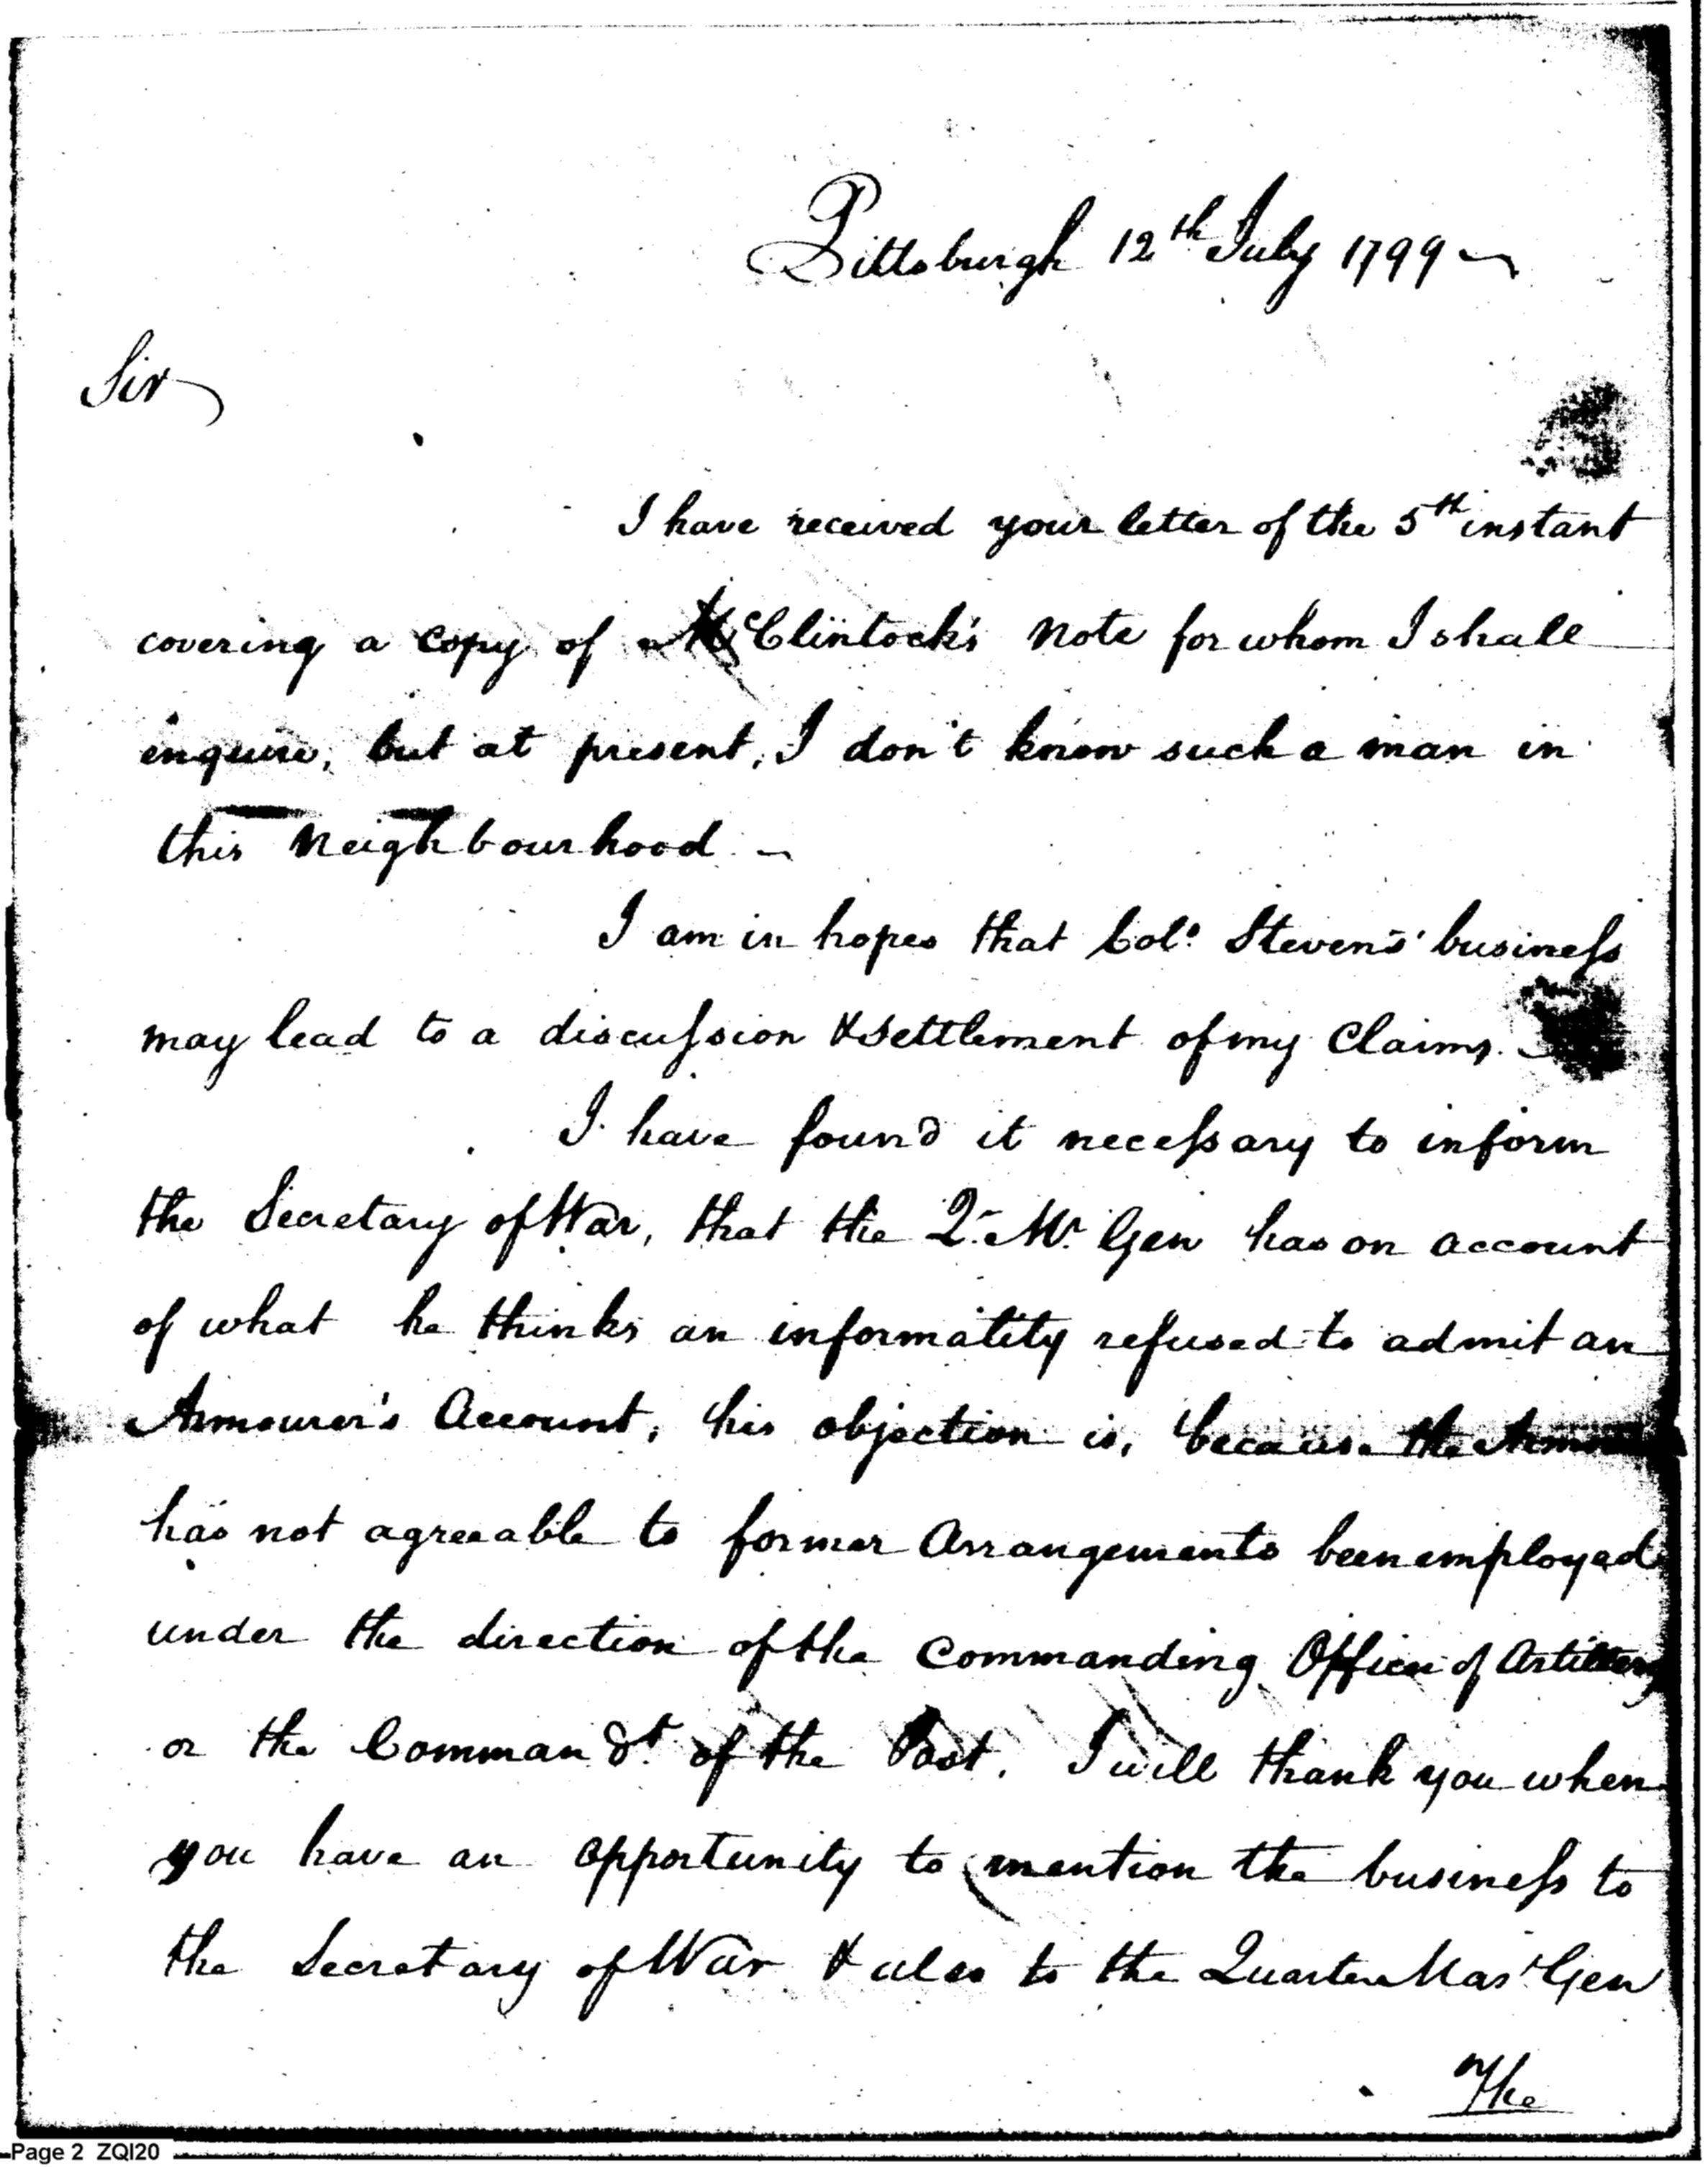 Pittsburgh 12th July 1799
Sir
I have received your letter of the 5th instant
covering a Copy of a McClintock's Note for whom I shall
enquire, but at present, I don't know such a man in
this Neighbourhood. -
I am in hopes that Colo. Stevens' business
may lead to a discussion & settlement of my Claims. -
I have found it necessary to inform
the Secretary of War, that the Q. Mr. Gen has on account
of what he thinks an informality refused to admit an
Armourer's Account, his objection is, because the
has not agreeable to former Arrangements been employed
under the direction of the Commanding Officer of Artillery
or the Commandt. of the Post. I will thank you when
you have an opportunity to mention the business to
the Secretary of War & also to the Quarter Masr Gen
The
Page 2 ZQI20